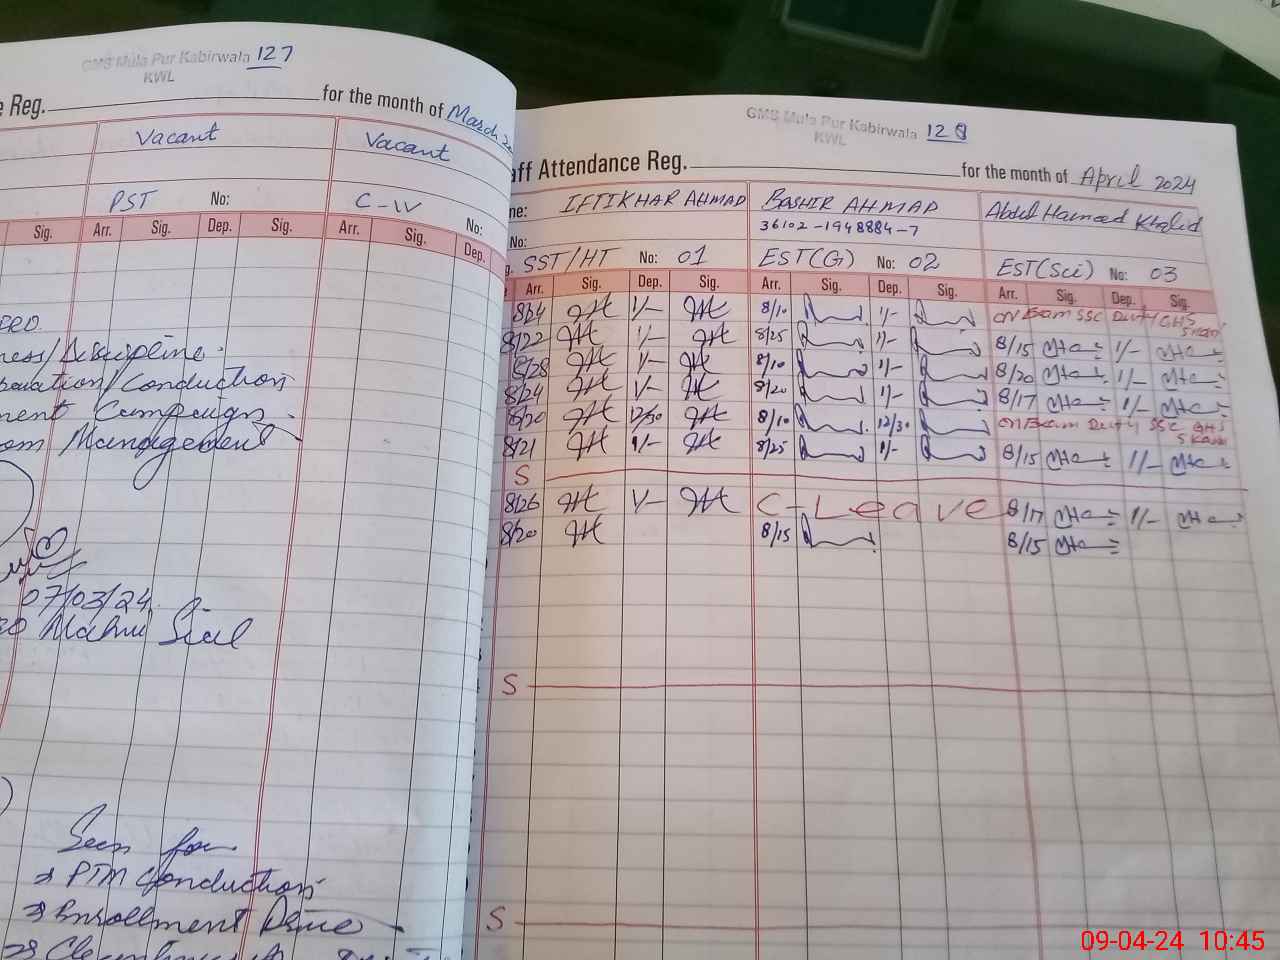 GMS Mula Pur Kabirwala 127
KWL
e Reg. for the month of March 20
Vacant Vacant
PST No: C-IV No:
Sig. Arr. Sig. Dep. Sig. Arr. Sig. Dep.
ness/Discipline.
Conduction
ment Campaign.
om Management
07/03/24
Sial
Seen for
→ PTM Conduction
→ Enrollment Drive
GMS Mula Pur Kabirwala 128
KWL
aff Attendance Reg. for the month of April 2024
me: IFTIKHAR AHMAD BASHIR AHMAD Abdul Hameed Khalid
No: 36102-1948884-7
g. SST/HT No: 01 EST(G) No: 02 EST(Sci) No: 03
Arr. Sig. Dep. Sig. Arr. Sig. Dep. Sig. Arr. Sig. Dep. Sig.
8/24 1/- 8/10 1/- on Exam SSC Duty GHS
8/22 1/- 8/25 1/- 8/15 1/-
8/28 1/- 8/10 1/- 8/20 1/-
8/24 1/- 8/20 1/- 8/17 1/-
8/20 12/30 8/10 12/30 on Exam Duty SSC GHS
8/21 1/- 8/25 1/- 8/15 1/-
S
8/26 1/- C-Leave 8/17 1/-
8/20 8/15 8/15
S
S
09-04-24 10:45